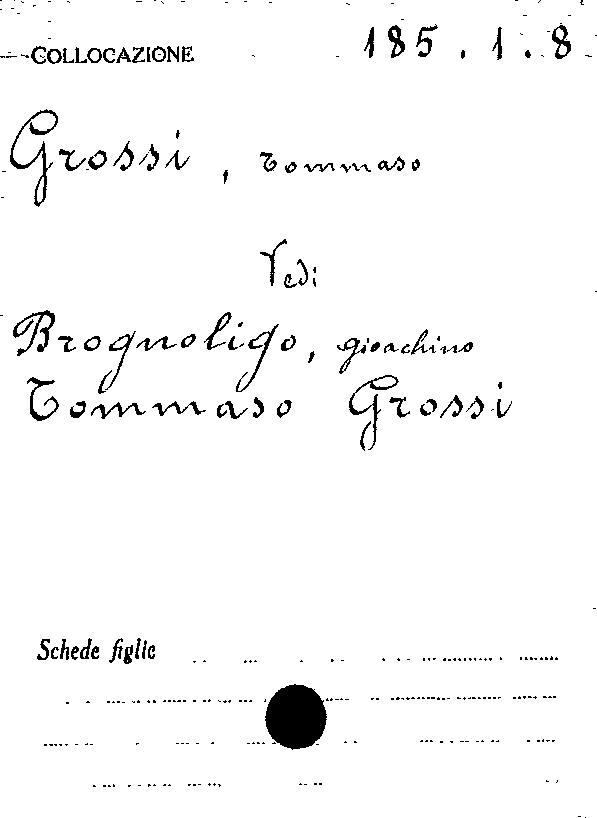 COLLOCAZIONE 185.1.8
Grossi, Tommaso
Vedi
Brognoligo, Gioachino
Tommaso Grossi
Schede figlie